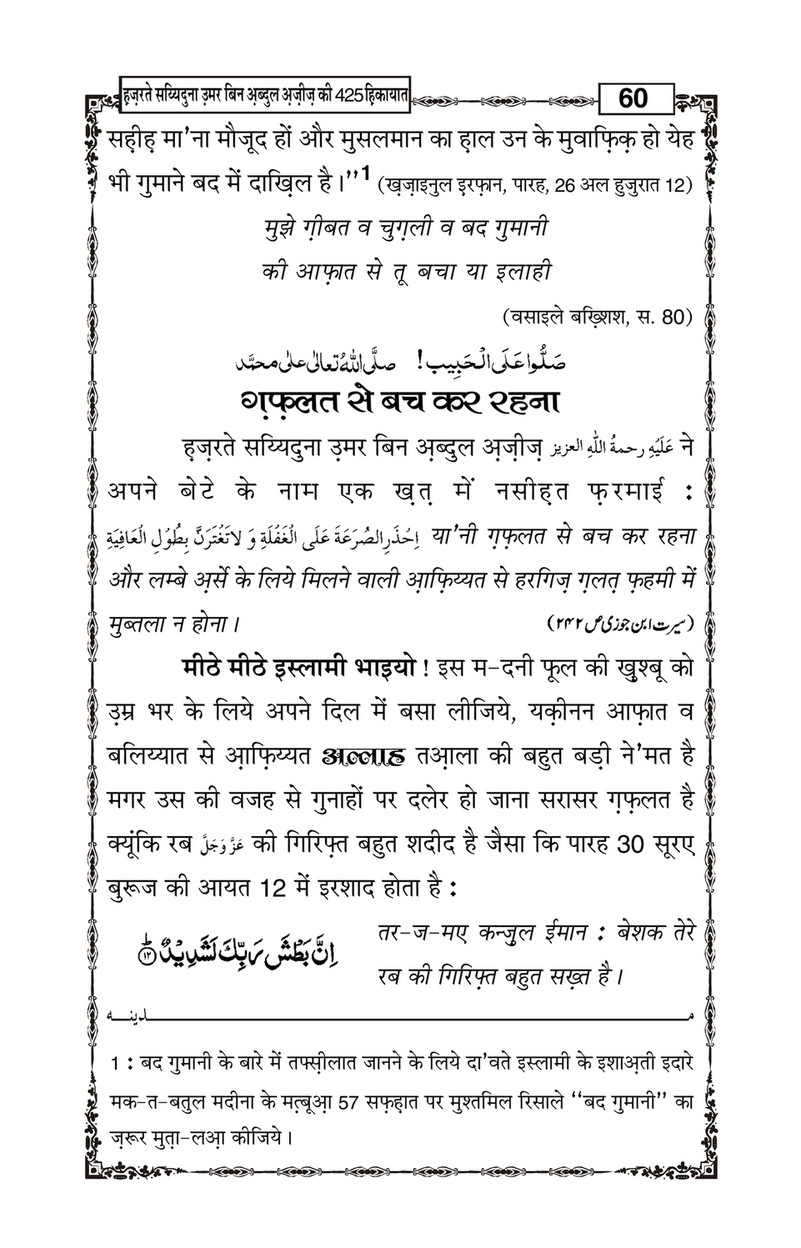 हज़रते सय्यिदुना उ़मर बिन अ़ब्दुल अ़ज़ीज़ की 425 हिकायात
60
सह़ीह़ मा'ना मौजूद हों और मुसलमान का ह़ाल उन के मुवाफ़िक़ हो येह
भी गुमाने बद में दाखि़ल है।''1 (ख़ज़ाइनुल इ़रफ़ान, पारह, 26 अल हुजुरात 12)
मुझे ग़ीबत व चुग़ली व बद गुमानी
की आफ़ात से तू बचा या इलाही
(वसाइले बख़्शिश, स. 80)
صَلُّوا عَلَى الْحَبِيب! صلَّى اللهُ تعالى على محمَّد
ग़फ़्लत से बच कर रहना
ह़ज़रते सय्यिदुना उ़मर बिन अ़ब्दुल अ़ज़ीज़ عَلَيْهِ رحمةُ اللهِ العزيز ने
अपने बेटे के नाम एक ख़त़ में नसीह़त फ़रमाई :
اِحْذَرِ الصُّرْعَةَ عَلَى الْغَفْلَةِ وَ لَا تَغْتَرَنَّ بِطُوْلِ الْعَافِيَةِ या'नी ग़फ़्लत से बच कर रहना
और लम्बे अ़र्से के लिये मिलने वाली आ़फ़िय्यत से हरगिज़ ग़लत़ फ़हमी में
मुब्तला न होना। (سیرت ابن جوزی ص ۲۴۲)
मीठे मीठे इस्लामी भाइयो ! इस म-दनी फूल की खु़श्बू को
उ़म्र भर के लिये अपने दिल में बसा लीजिये, यक़ीनन आफ़ात व
बलिय्यात से आ़फ़िय्यत अल्लाह तआ़ला की बहुत बड़ी ने'मत है
मगर उस की वजह से गुनाहों पर दलेर हो जाना सरासर ग़फ़्लत है
क्यूंकि रब عَزَّ وَجَلَّ की गिरिफ़्त बहुत शदीद है जैसा कि पारह 30 सूरए
बुरूज की आयत 12 में इरशाद होता है :
اِنَّ بَطْشَ رَبِّكَ لَشَدِیْدٌ ؕ﴿۱۲﴾
तर-ज-मए कन्ज़ुल ईमान : बेशक तेरे
रब की गिरिफ़्त बहुत सख़्त है।
مـــدینـــہ
1 : बद गुमानी के बारे में तफ़्सीलात जानने के लिये दा'वते इस्लामी के इशाअ़ती इदारे
मक-त-बतुल मदीना के मत़्बूआ़ 57 सफ़ह़ात पर मुश्तमिल रिसाले ''बद गुमानी'' का
ज़रूर मुत़ा-लआ़ कीजिये।